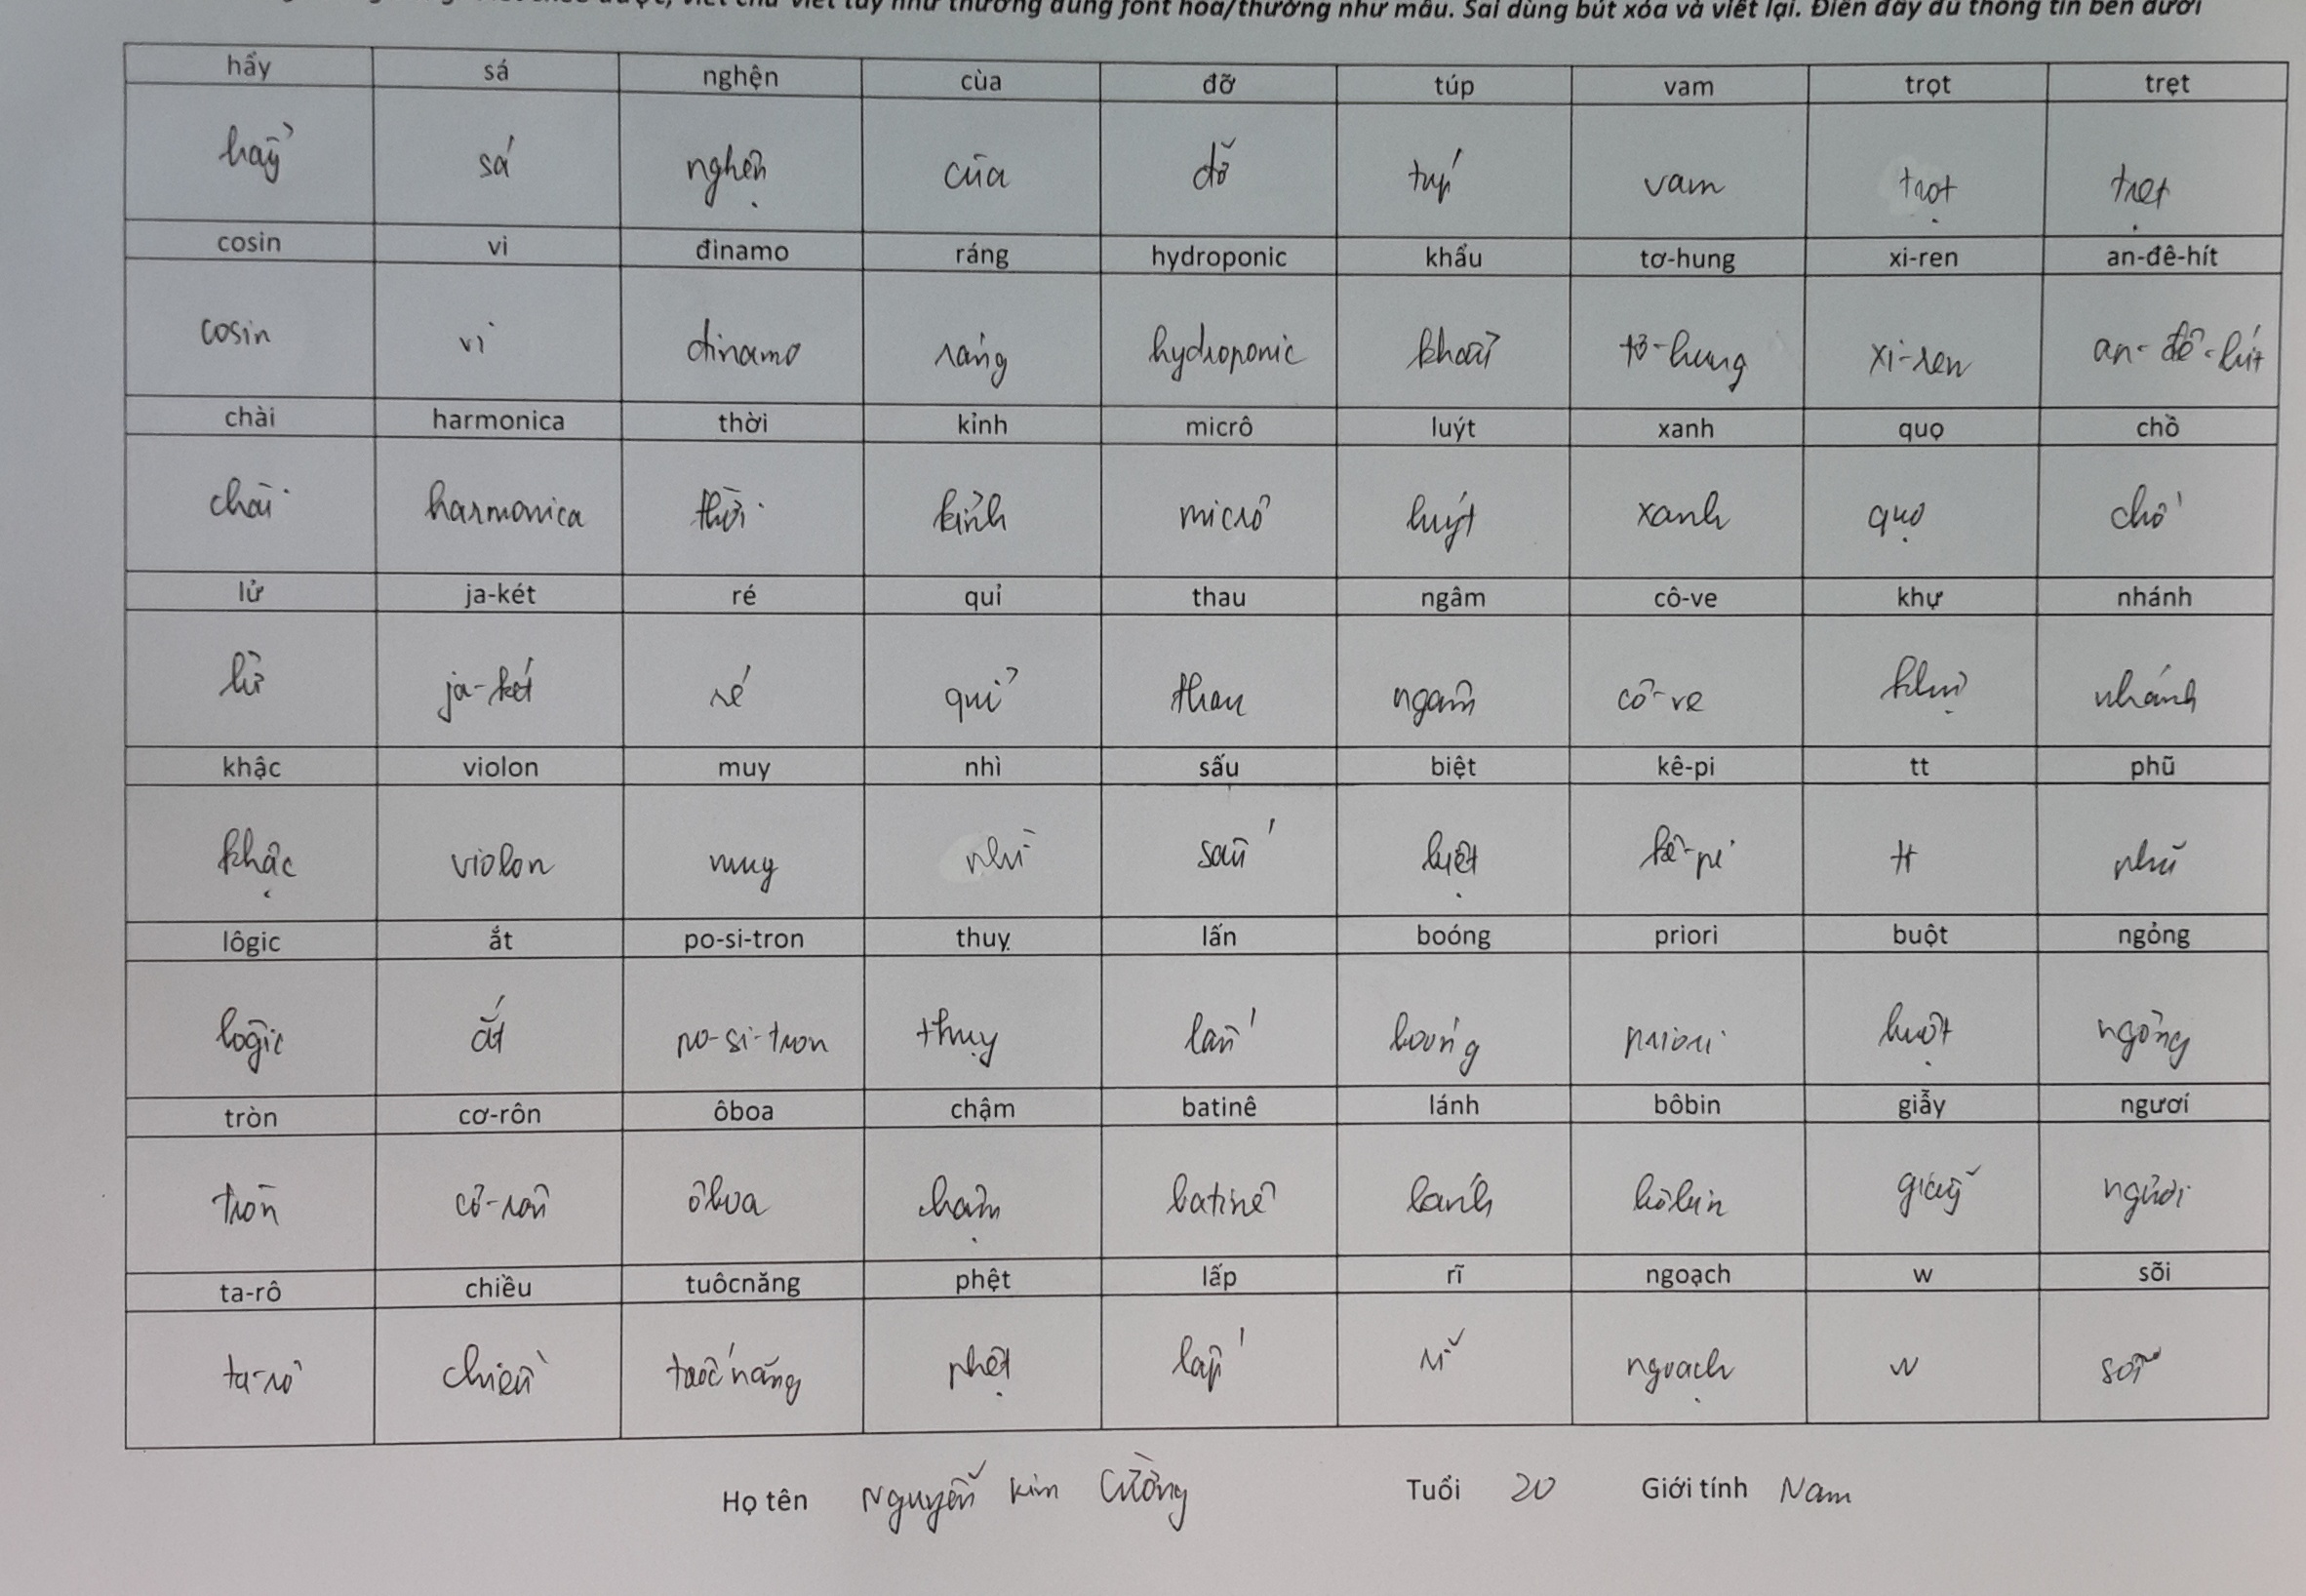 viết chữ viết tay như thường dùng font hoa/thường như mẫu. Sai dùng bút xóa và viết lại. Điền đầy đủ thông tin bên dưới
hẩy sá nghện cùa đỡ túp vam trọt trẹt
hẩy sá nghện cùa đỡ túp vam trọt trẹt
cosin vi đinamo ráng hydroponic khẩu tơ-hung xi-ren an-đê-hít
cosin vi đinamo ráng hydroponic khoẩi tơ-hung xi-ren an-đê-hít
chài harmonica thời kỉnh micrô luýt xanh quọ chồ
chài harmonica thời kỉnh micrô luýt xanh quọ chồ
lử ja-két ré quỉ thau ngâm cô-ve khự nhánh
lử ja-két ré quỉ thau ngâm cô-ve khự nhánh
khậc violon muy nhì sấu biệt kê-pi tt phũ
khậc violon muy nhì sấu biệt kê-pi tt phũ
lôgic ắt po-si-tron thuỵ lấn boóng priori buột ngỏng
lôgic ắt po-si-tron thuỵ lấn boóng priori buột ngỏng
tròn cơ-rôn ôboa chậm batinê lánh bôbin giẫy ngươí
tròn cơ-rôn ôboa chậm batinê lánh bôbin giẫy ngươí
ta-rô chiều tuôcnăng phệt lấp rĩ ngoạch w sõi
ta-rô chiều tuốcnăng phệt lấp rĩ ngoạch w sõi
Họ tên Nguyễn Kim Cường Tuổi 20 Giới tính Nam